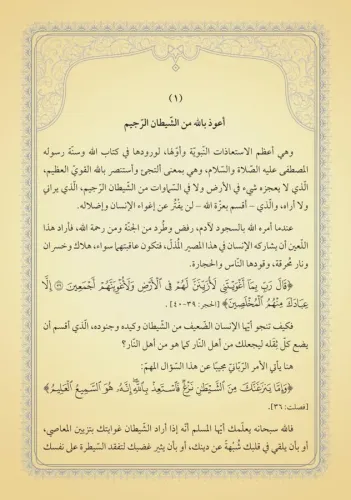 (١)
أعوذ بالله من الشّيطان الرّجيم
وهي أعظم الاستعاذات النّبويّة وأوّلها، لورودها في كتاب الله وسنّة رسوله
المصطفى عليه الصّلاة والسّلام، وهي بمعنى ألتجئ وأستنصر بالله القويّ العظيم،
الّذي لا يعجزه شيء في الأرض ولا في السّماوات من الشّيطان الرّجيم، الّذي يراني
ولا أراه، والّذي – أقسم بعزّة الله – لن يفْتُر عن إغواء الإنسان وإضلاله.
عندما أمره الله بالسجود لآدم، رفض وطُرد من الجنّة ومن رحمة الله، فأراد هذا
اللّعين أن يشاركه الإنسان في هذا المصير المُذلّ، فتكون عاقبتهما سواء، هلاك وخسران
ونار مُحرقة، وقودها النّاس والحجارة.
﴿قَالَ رَبِّ بِمَآ أَغْوَيْتَنِي لَأُزَيِّنَنَّ لَهُمْ فِي ٱلْأَرْضِ وَلَأُغْوِيَنَّهُمْ أَجْمَعِينَ ۝ إِلَّا
عِبَادَكَ مِنْهُمُ ٱلْمُخْلَصِينَ﴾ [الحجر: ٣٩-٤٠].
فكيف تنجو أيّها الإنسان الضّعيف من الشّيطان وكيده وجنوده، الّذي أقسم أن
يضع كلّ ثِقَله ليجعلك من أهل النّار كما هو من أهل النّار؟
هنا يأتي الأمر الرّبّانيّ مجيبًا عن هذا السّؤال المهمّ:
﴿وَإِمَّا يَنزَغَنَّكَ مِنَ ٱلشَّيْطَٰنِ نَزْغٌ فَٱسْتَعِذْ بِٱللَّهِ إِنَّهُۥ هُوَ ٱلسَّمِيعُ ٱلْعَلِيمُ﴾
[فصلت: ٣٦].
فالله سبحانه يعلّمك أيّها المسلم أنّه إذا أراد الشّيطان غوايتك بتزيين المعاصي،
أو بأن يلقي في قلبك شُبْهةً عن دينك، أو بأن يثير غضبك لتفقد السّيطرة على نفسك